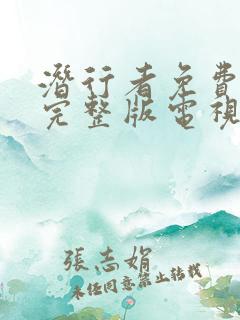 潛行者免費
完整版電視
張志娟
未经同意禁止转载